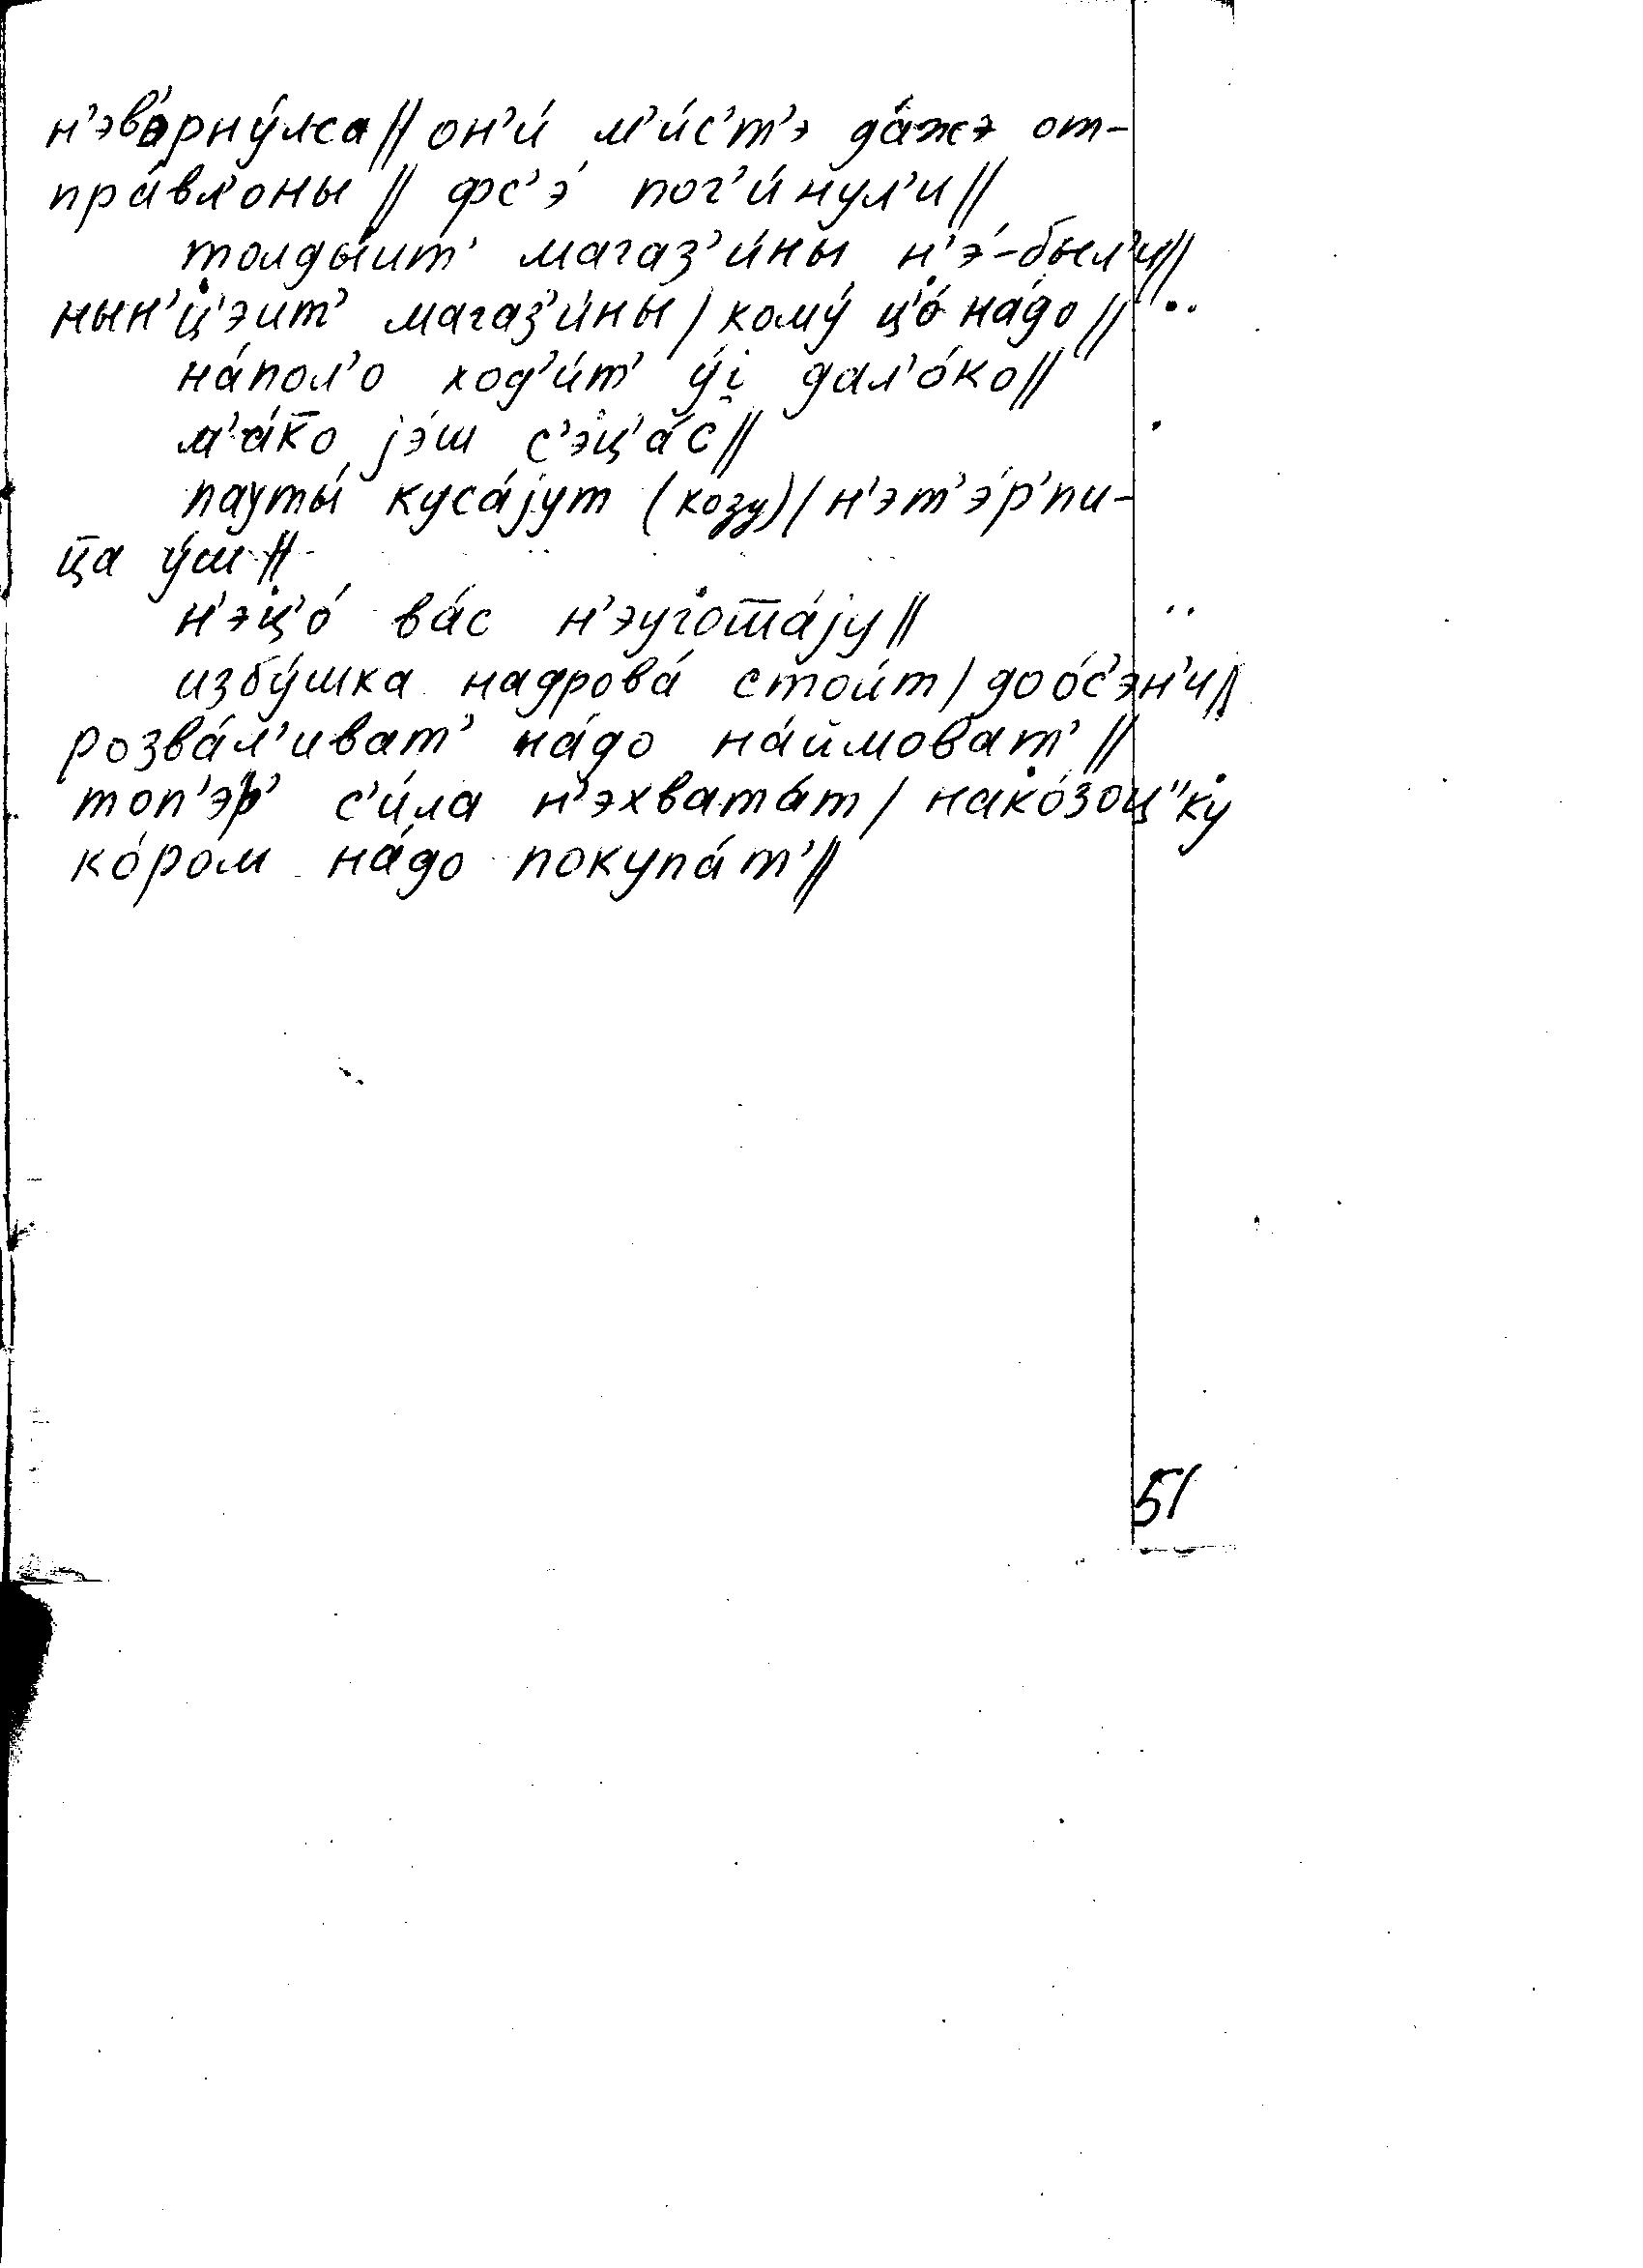 н’эв’орну́лса // он’и́ м’и́с’т’э да́жэ от-
пра́вл’оны // фс’э́ пог’и́нул’и //
толды́ит’ магаз’и́ны н’э́-был’и //
нын’ц’эит’ магаз’и́ны / кому́ ц’о́ на́до //
на́пол’о ход’и́т’ у́і дал’о́ко //
м’а́к̄о jэ́ш с’эц’а́с //
пауты́ куса́jут (козу) / н’эт’э́р’пи-
ц̄а у́ш //
н’эц’о́ ва́с н’эугот̄а́jу //
избу́шка надрова́ стои́т / доо́с’эн’и //
розва́л’иват’ на́до на́ймоват’ //
топ’э́р’ с’и́ла н’эхвата́т / нако́зоц"ку
ко́ром на́до покупа́т’ //
51